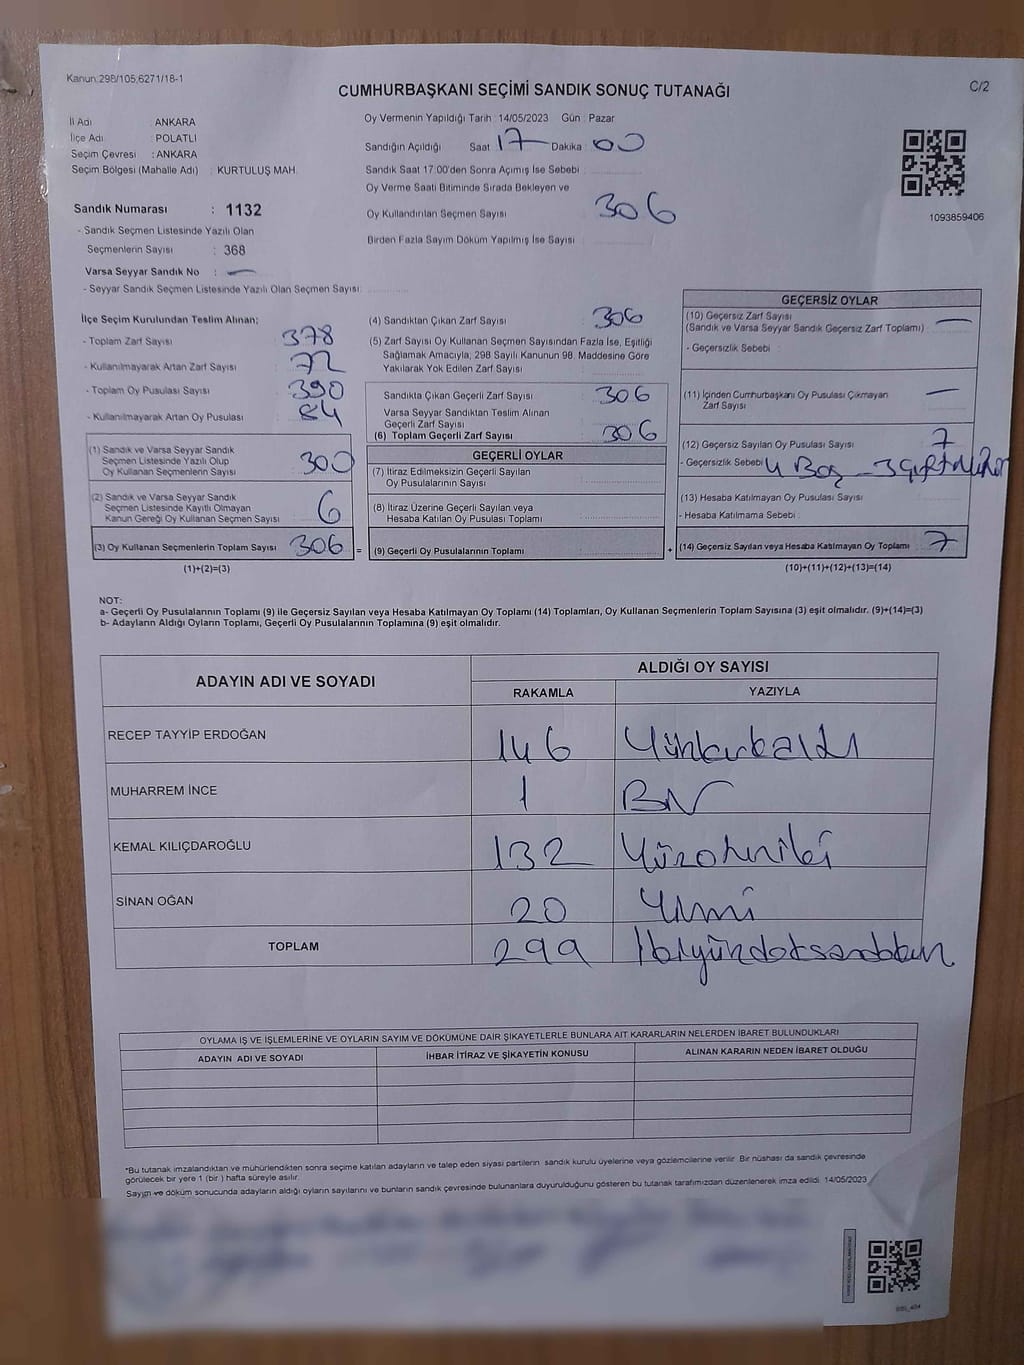 Kanun:298/105,6271/18-1
C/2
CUMHURBAŞKANI SEÇİMİ SANDIK SONUÇ TUTANAĞI
İl Adı : ANKARA
İlçe Adı : POLATLI
Seçim Çevresi : ANKARA
Seçim Bölgesi (Mahalle Adı) : KURTULUŞ MAH.
Sandık Numarası : 1132
- Sandık Seçmen Listesinde Yazılı Olan
Seçmenlerin Sayısı : 368
Varsa Seyyar Sandık No : —
- Seyyar Sandık Seçmen Listesinde Yazılı Olan Seçmen Sayısı:
Oy Vermenin Yapıldığı Tarih : 14/05/2023 Gün : Pazar
Sandığın Açıldığı Saat 17 Dakika 00
Sandık Saat 17:00'den Sonra Açımış İse Sebebi :
Oy Verme Saati Bitiminde Sırada Bekleyen ve
Oy Kullandırılan Seçmen Sayısı 306
Birden Fazla Sayım Döküm Yapılmış İse Sayısı :
1093859406
İlçe Seçim Kurulundan Teslim Alınan;
- Toplam Zarf Sayısı : 378
- Kullanılmayarak Artan Zarf Sayısı : 72
- Toplam Oy Pusulası Sayısı : 390
- Kullanılmayarak Artan Oy Pusulası : 84
(1) Sandık ve Varsa Seyyar Sandık
Seçmen Listesinde Yazılı Olup
Oy Kullanan Seçmenlerin Sayısı : 300
(2) Sandık ve Varsa Seyyar Sandık
Seçmen Listesinde Kayıtlı Olmayan
Kanun Gereği Oy Kullanan Seçmen Sayısı : 6
(3) Oy Kullanan Seçmenlerin Toplam Sayısı : 306 =
(1)+(2)=(3)
(4) Sandıktan Çıkan Zarf Sayısı : 306
(5) Zarf Sayısı Oy Kullanan Seçmen Sayısından Fazla İse, Eşitliği
Sağlamak Amacıyla; 298 Sayılı Kanunun 98. Maddesine Göre
Yakılarak Yok Edilen Zarf Sayısı :
Sandıkta Çıkan Geçerli Zarf Sayısı : 306
Varsa Seyyar Sandıktan Teslim Alınan
Geçerli Zarf Sayısı :
(6) Toplam Geçerli Zarf Sayısı : 306
GEÇERLİ OYLAR
(7) İtiraz Edilmeksizin Geçerli Sayılan
Oy Pusulalarının Sayısı :
(8) İtiraz Üzerine Geçerli Sayılan veya
Hesaba Katılan Oy Pusulası Toplamı :
(9) Geçerli Oy Pusulalarının Toplamı : +
GEÇERSİZ OYLAR
(10) Geçersiz Zarf Sayısı : —
(Sandık ve Varsa Seyyar Sandık Geçersiz Zarf Toplamı)
- Geçersizlik Sebebi :
(11) İçinden Cumhurbaşkanı Oy Pusulası Çıkmayan —
Zarf Sayısı :
(12) Geçersiz Sayılan Oy Pusulası Sayısı : 7
- Geçersizlik Sebebi : 4 Boş - 3
(13) Hesaba Katılmayan Oy Pusulası Sayısı :
- Hesaba Katılmama Sebebi :
(14) Geçersiz Sayılan veya Hesaba Katılmayan Oy Toplamı : 7
(10)+(11)+(12)+(13)=(14)
NOT:
a- Geçerli Oy Pusulalarının Toplamı (9) ile Geçersiz Sayılan veya Hesaba Katılmayan Oy Toplamı (14) Toplamları, Oy Kullanan Seçmenlerin Toplam Sayısına (3) eşit olmalıdır. (9)+(14)=(3)
b- Adayların Aldığı Oyların Toplamı, Geçerli Oy Pusulalarının Toplamına (9) eşit olmalıdır.
ADAYIN ADI VE SOYADI
ALDIĞI OY SAYISI
RAKAMLA YAZIYLA
RECEP TAYYİP ERDOĞAN 146 Yüzkırkaltı
MUHARREM İNCE 1 Bir
KEMAL KILIÇDAROĞLU 132 Yüzotuziki
SİNAN OĞAN 20 Yirmi
TOPLAM 299 İkiyüzdoksandokuz
OYLAMA İŞ VE İŞLEMLERİNE VE OYLARIN SAYIM VE DÖKÜMÜNE DAİR ŞİKAYETLERLE BUNLARA AİT KARARLARIN NELERDEN İBARET BULUNDUKLARI
ADAYIN ADI VE SOYADI İHBAR İTİRAZ VE ŞİKAYETİN KONUSU ALINAN KARARIN NEDEN İBARET OLDUĞU
*Bu tutanak imzalandıktan ve mühürlendikten sonra seçime katılan adayların ve talep eden siyasi partilerin sandık kurulu üyelerine veya gözlemcilerine verilir. Bir nüshası da sandık çevresinde
görülecek bir yere 1 (bir ) hafta süreyle asılır.
Sayım ve döküm sonucunda adayların aldığı oyların sayılarını ve bunların sandık çevresinde bulunanlara duyurulduğunu gösteren bu tutanak tarafımızdan düzenlenerek imza edildi. 14/05/2023